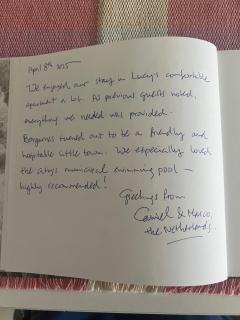 April 8th 2025
We enjoyed our stay in Lucy's comfortable
apartment a lot. As previous guests noted,
everything we needed was provided.
turned out to be a friendly and
hospitable little town. We especially loved
the city's municipal swimming pool –
highly recommended!
Greetings from
& Marco,
the Netherlands.